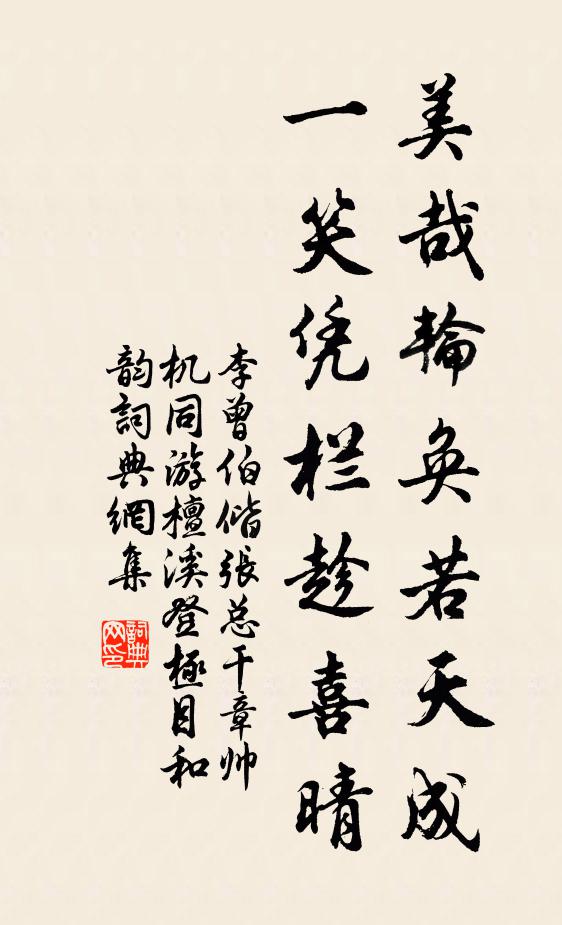 美哉輪奐若天成
一笑凭栏趁喜晴
李曾伯偕張总干章帅
机同游檀溪登極目和
韵詞典網集
詞典
网印